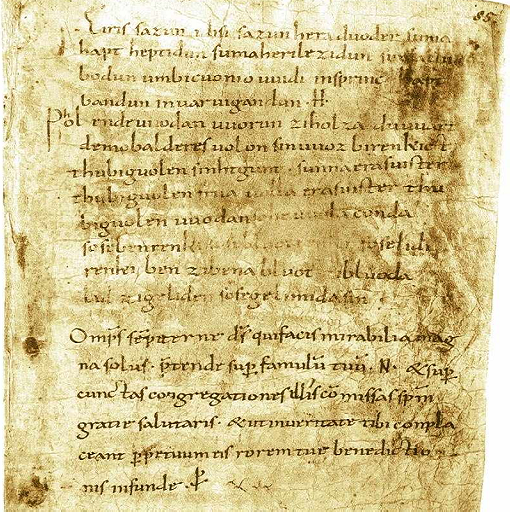 85
Eiris sazun idisi sazun hera duoder suma
hapt heptidun sumaherilezidun sumaclu
bodun umbicuonio uuidi insprinc hapt
bandun inuar uigandun · H ·
Phol endeuuodan uuorun ziholza du uuart
demobalderes uolon sinuuoz birenkict
thubiguolen sinhtgunt · sunnaerasuister
thubiguolen friia uolla erasuister thu
biguolen uuodan sohe uuola conda
sosebenrenki sosebluotrenki soselidi
renki ben zibena bluot zibluoda
lid zigeliden sosegelimida sin
Omp̅s se̅piterne d̅s quifacis mirabilia mag
na solus · p̅tende sup̱ famulu̅ tuu̅ · N · &sup̱
cunctas congregationes illis co̅missas sp̅m
gratie salutaris · &utinueritate tibi conpla
ceant p̱petuum eis rorem tue benedictio
nis infunde · P̱